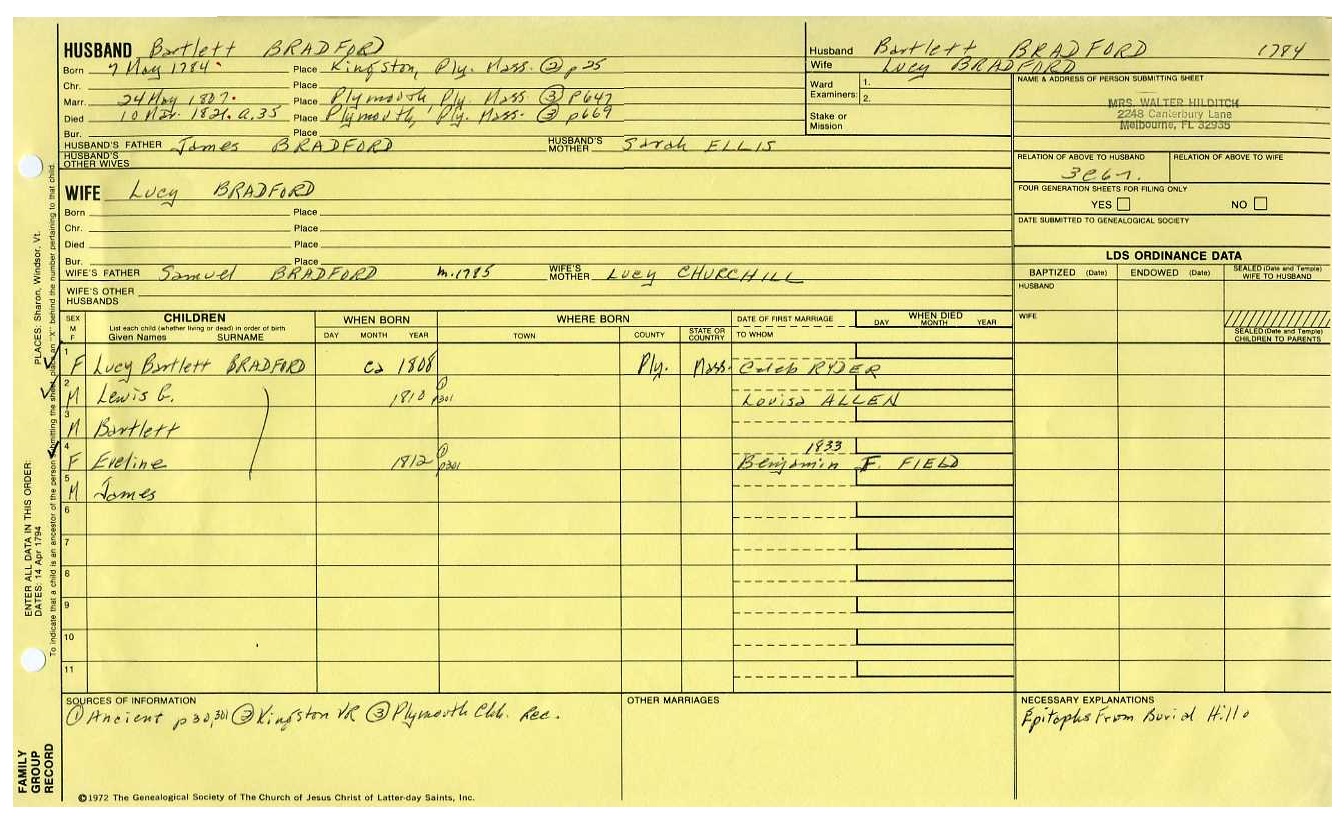 HUSBAND Bartlett BRADFORD
Born 7 May 1784 Place Kingston, Ply. Mass. ② p25
Chr. Place
Marr. 24 May 1807 Place Plymouth Ply Mass ③ P647
Died 10 Mar. 1821. a.35 Place Plymouth, Ply. Mass. ③ p669
Bur. Place
HUSBAND'S FATHER James BRADFORD HUSBAND'S MOTHER Sarah ELLIS
HUSBAND'S OTHER WIVES
WIFE Lucy BRADFORD
Born Place
Chr. Place
Died Place
Bur. Place
WIFE'S FATHER Samuel BRADFORD m.1785 WIFE'S MOTHER Lucy CHURCHILL
WIFE'S OTHER HUSBANDS
Husband Bartlett BRADFORD 1784
Wife Lucy BRADFORD
Ward Examiners: 1.
2.
Stake or Mission
NAME & ADDRESS OF PERSON SUBMITTING SHEET
MRS. WALTER HILDITCH
2248 Canterbury Lane
Melbourne, FL 32935
RELATION OF ABOVE TO HUSBAND RELATION OF ABOVE TO WIFE
FOUR GENERATION SHEETS FOR FILING ONLY
YES NO
DATE SUBMITTED TO GENEALOGICAL SOCIETY
LDS ORDINANCE DATA
BAPTIZED (Date) ENDOWED (Date) SEALED (Date and Temple) WIFE TO HUSBAND
HUSBAND
WIFE
SEALED (Date and Temple) CHILDREN TO PARENTS
SEX M F
CHILDREN
List each child (whether living or dead) in order of birth
Given Names SURNAME
WHEN BORN
DAY MONTH YEAR
WHERE BORN
TOWN COUNTY STATE OR COUNTRY
DATE OF FIRST MARRIAGE
TO WHOM
WHEN DIED
DAY MONTH YEAR
1 F Lucy Bartlett BRADFORD ca 1808 Ply. Mass. Caleb RYDER
2 M Lewis G. 1810 ① p301 Louisa ALLEN
3 M Bartlett
4 F Eveline 1812 ① p301 1833 Benjamin F. FIELD
5 M James
6
7
8
9
10
11
SOURCES OF INFORMATION
① Ancient p30,301 ② Kingston VR ③ Plymouth Chh. Rec.
OTHER MARRIAGES
NECESSARY EXPLANATIONS
Epitaphs From Burial Hill
©1972 The Genealogical Society of The Church of Jesus Christ of Latter-day Saints, Inc.
FAMILY GROUP RECORD
ENTER ALL DATA IN THIS ORDER:
DATES: 14 Apr 1794 PLACES: Sharon, Windsor, Vt.
To indicate that a child is an ancestor of the person submitting the sheet, place an "X" behind the number pertaining to that child.